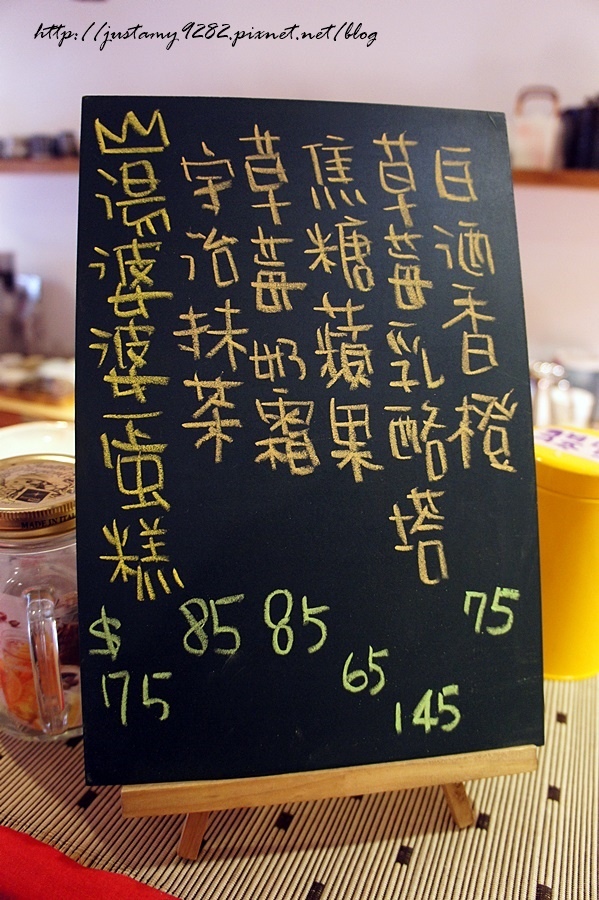 http://justamy9282.pixnet.net/blog
白酒香橙
75
草莓乳酪塔
145
焦糖蘋果
65
草莓奶霜
85
宇治抹茶
85
湯婆婆蛋糕
$75
MADE IN ITALY